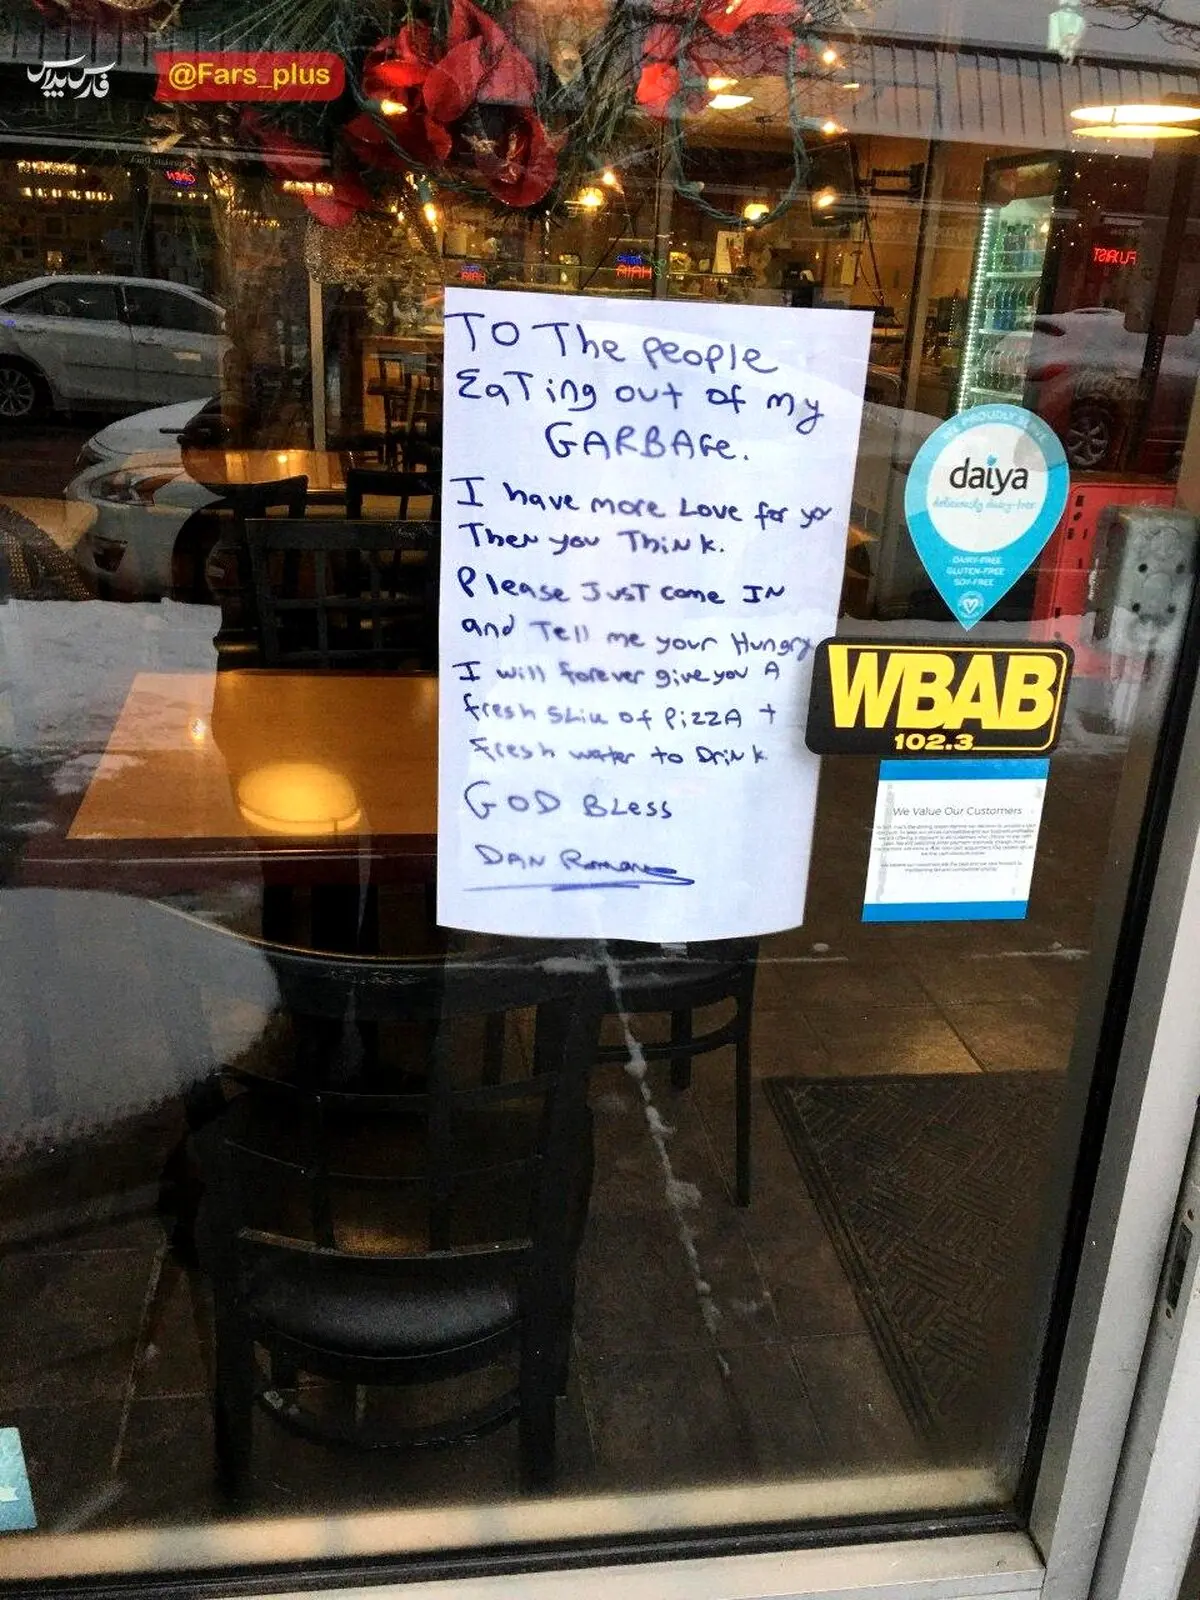 فارس پلاس
@Fars_plus
OPEN
HAIR
HAIR
FLORIST
TO The people
Eating out of my
GARBAGe.
I have more Love for yo
Then you Think.
Please JusT come IN
and Tell me your Hungry
I will forever give you A
fresh Sliu of PizzA +
fresh water to DriNk
GOD BLess
DAN Romano
WE PROUDLY SERVE
daiya
deliciously dairy-free
DAIRY-FREE
GLUTEN-FREE
SOY-FREE
WBAB
102.3
We Value Our Customers